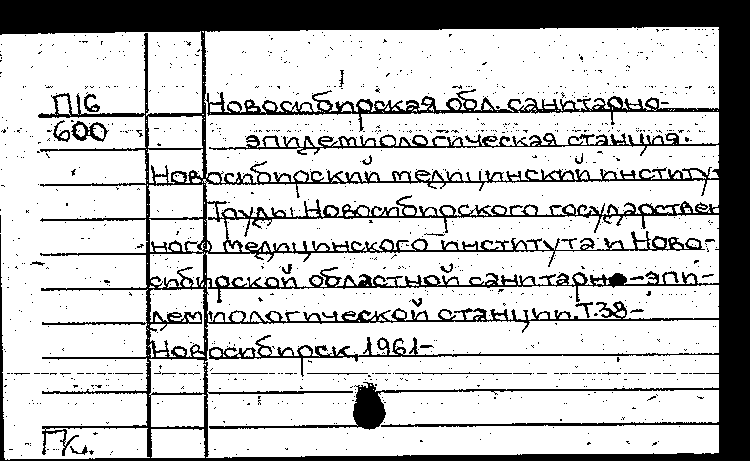 П16 Новосибирская обл. санитарно-
600 эпидемиологическая станция.
Новосибирский медицинский институт
Труды Новосибирского государствен
ного медицинского института и Ново-
сибирской областной санитарно-эпи-
демиологической станции. Т.38-
Новосибирск, 1961-